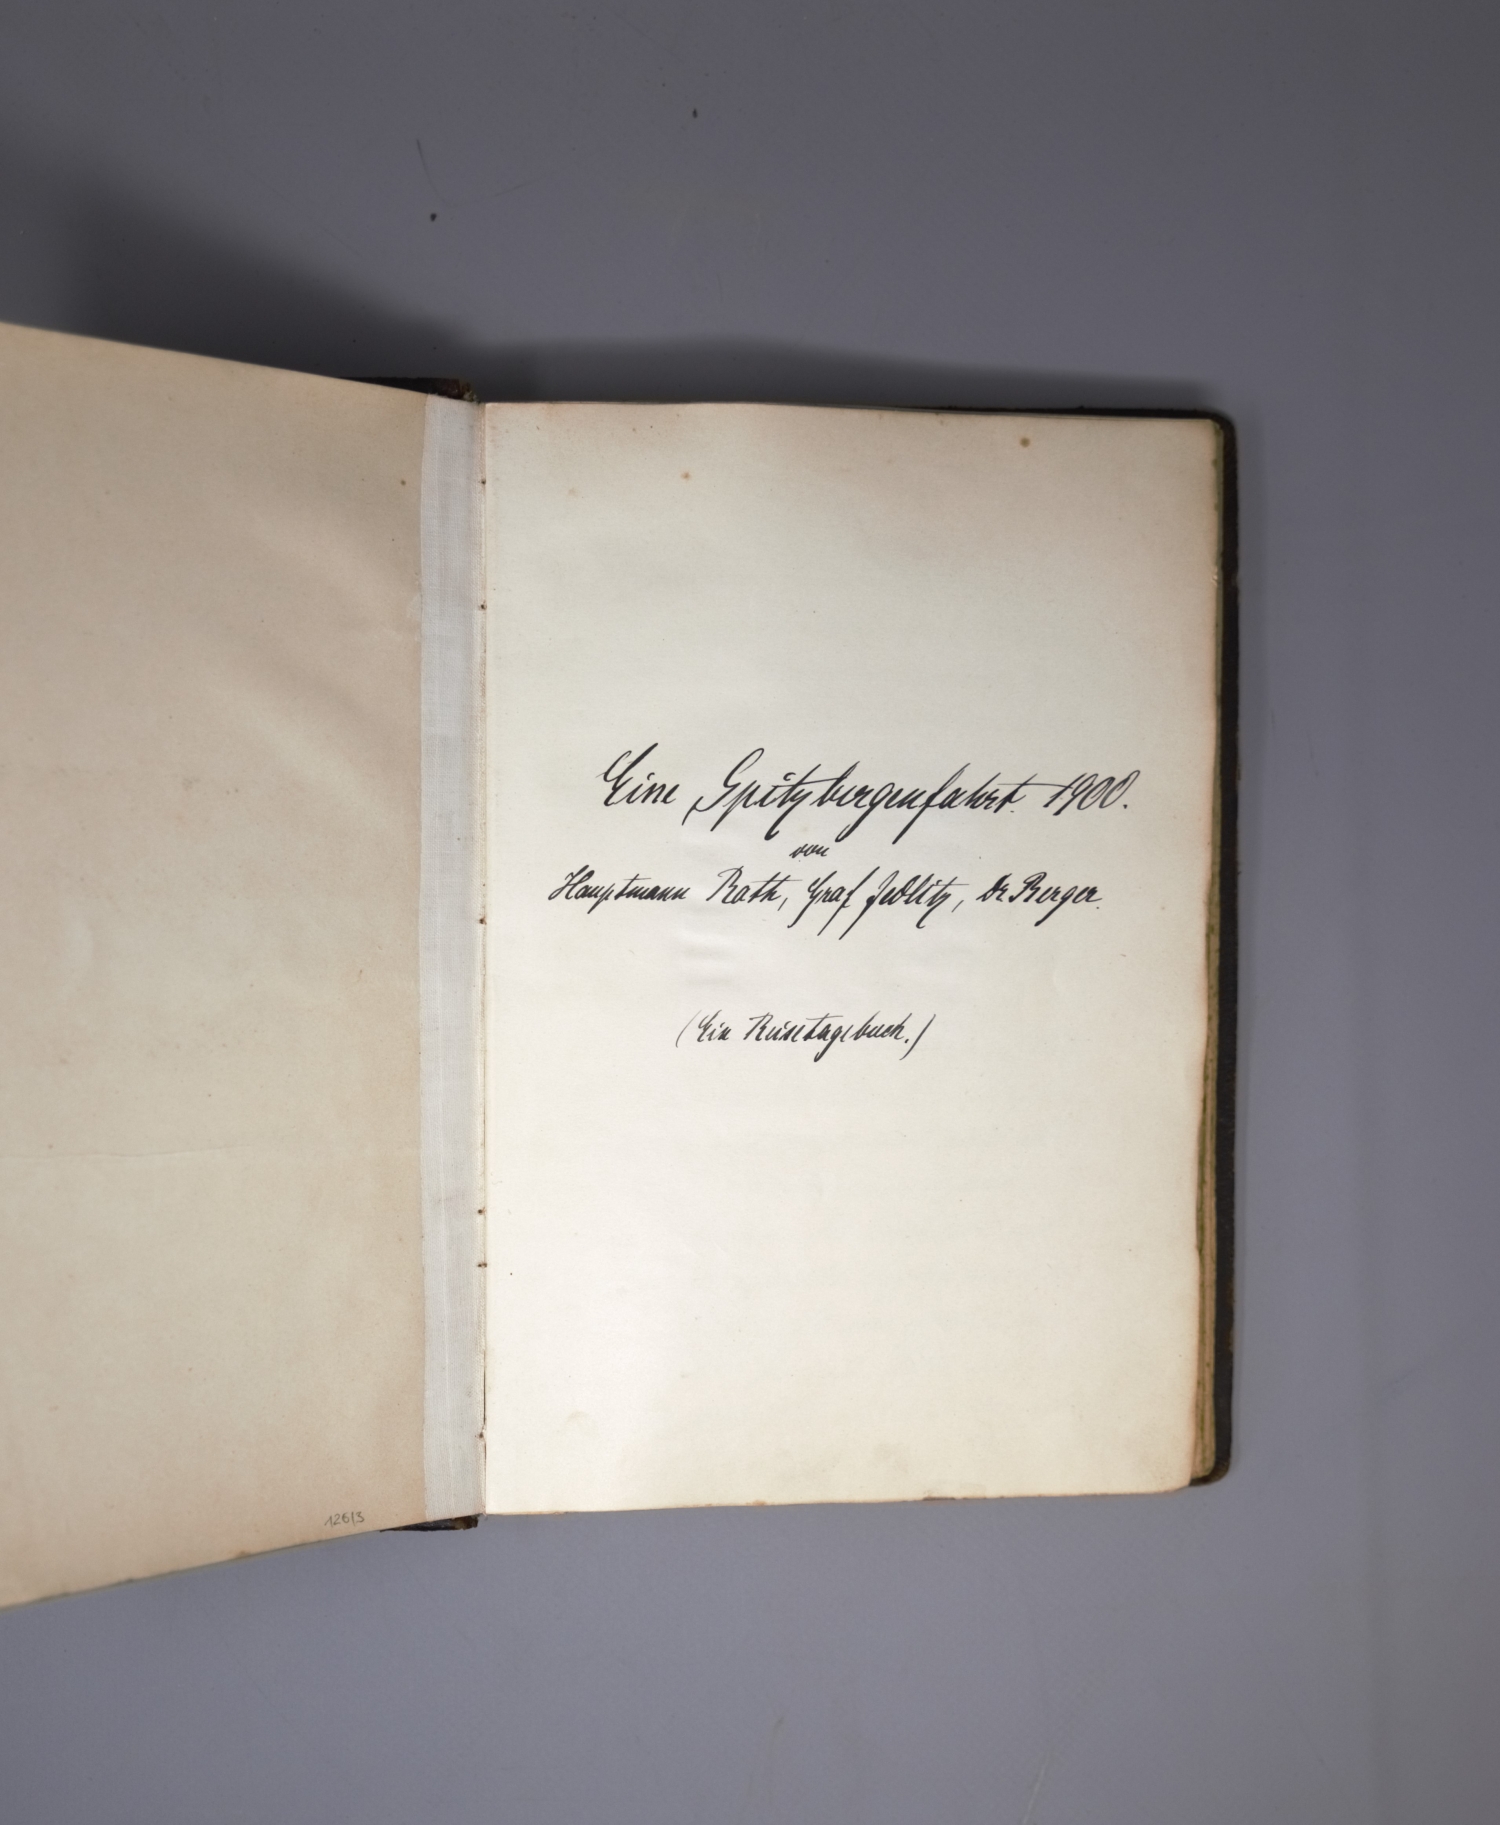 Eine Spitzbergenfahrt. 1900.
von
Hauptmann Rath, Graf Zedlitz, Dr Berger.
(Ein Reisetagebuch.)
126/3